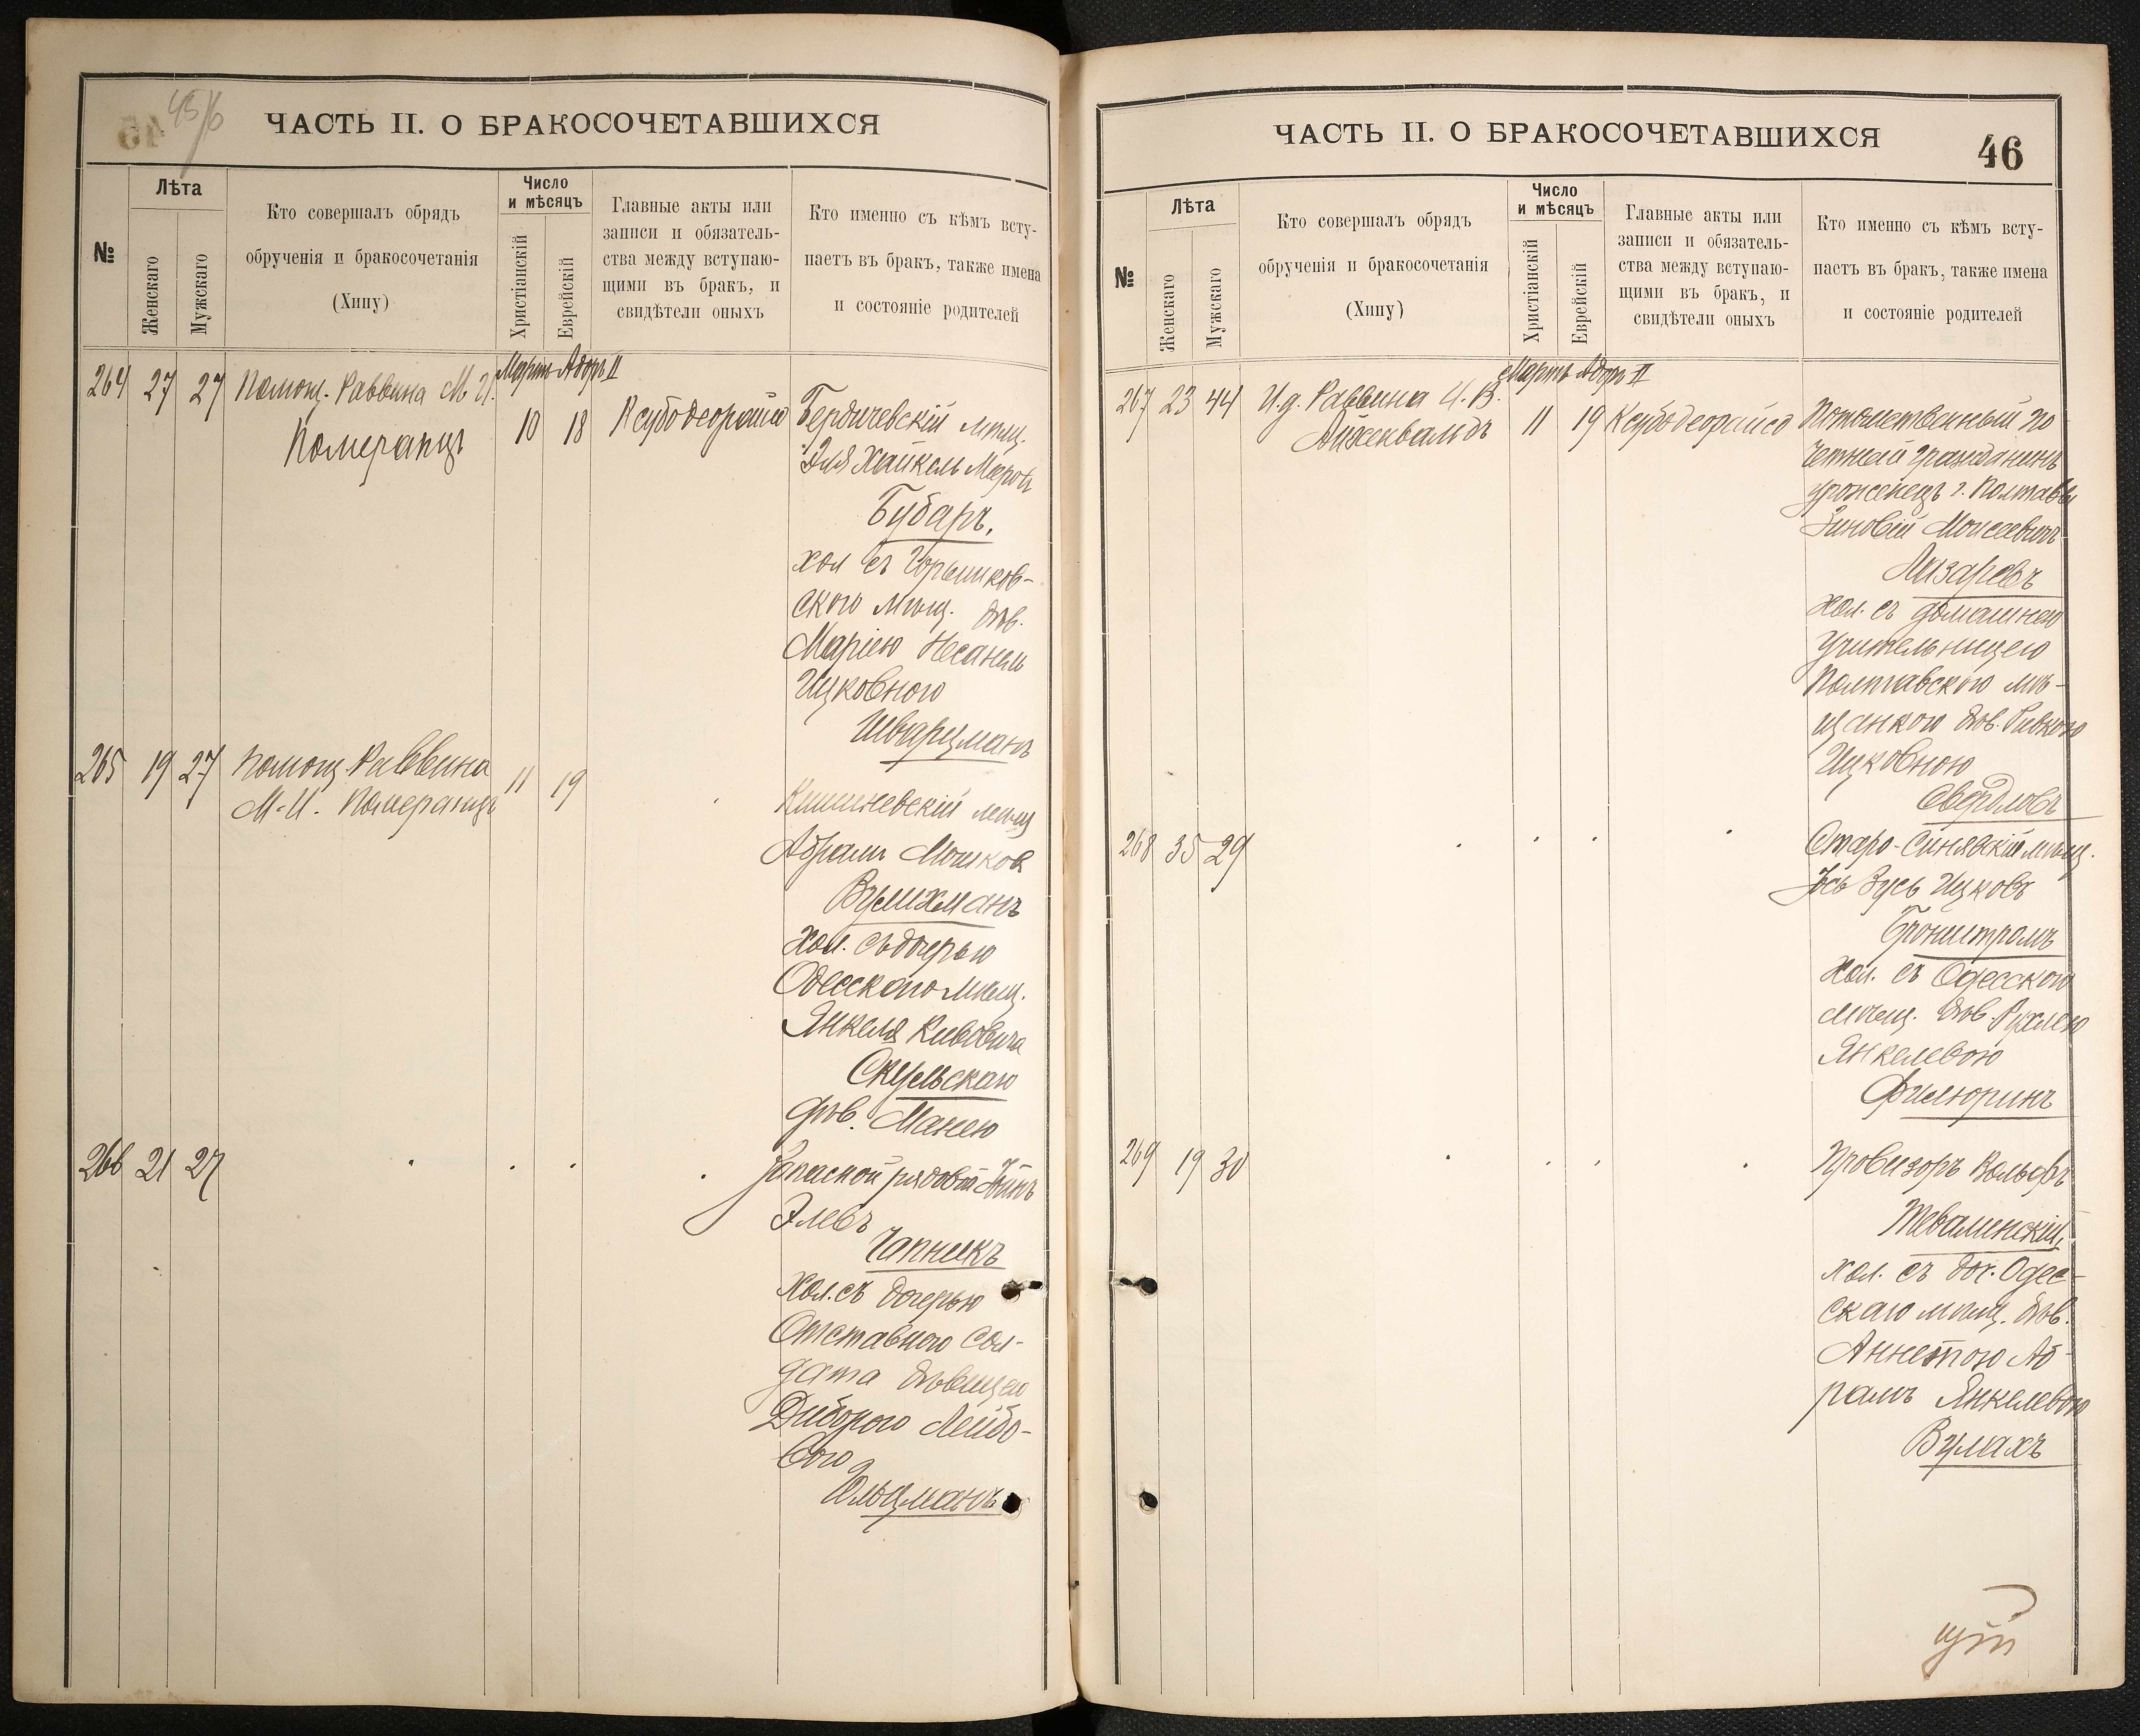 45/6
ЧАСТЬ II. О БРАКОСОЧЕТАВШИХСЯ
№
Лѣта
Женскаго
Мужскаго
Кто совершалъ обрядъ
обрученія и бракосочетанія
(Хипу)
Число
и мѣсяцъ
Христіанскій
Еврейскій
Главные акты или
записи и обязатель-
ства между вступаю-
щими въ бракъ, и
свидѣтели оныхъ
Кто именно съ кѣмъ всту-
паетъ въ бракъ, также имена
и состояніе родителей
Мартъ Адоръ II
264 27 27 Помощ. Раввина М. И.
Померанцъ
10 18 Ксубо деорайсо Бердичевскій мѣщ.
Хайкель
Бубаръ,
хол съ
ского мѣщ. дѣв.
Маріею
Ицковною
Шварцманъ
265 19 27 Помощ. Раввина
М. И. Померанцъ
11 19
Кишиневскій мѣщ
Абрамъ Мошков
Вульхманъ
Хол. съ дочерью
Одесскаго мѣщ.
Янкеля
Скульскаго
дѣв. Манею
266 21 27
Запасной рядовой
Элевъ
Чапникъ
Хол. съ дочерью
Отставного Сол-
дата дѣвицею
Лейбо-
вою
Гольцманъ
ЧАСТЬ II. О БРАКОСОЧЕТАВШИХСЯ
46
№
Лѣта
Женскаго
Мужскаго
Кто совершалъ обрядъ
обрученія и бракосочетанія
(Хипу)
Число
и мѣсяцъ
Христіанскій
Еврейскій
Главные акты или
записи и обязатель-
ства между вступаю-
щими въ бракъ, и
свидѣтели оныхъ
Кто именно съ кѣмъ всту-
паетъ въ бракъ, также имена
и состояніе родителей
Мартъ Адоръ II
267 23 44 И. д. Раввина
Айзенвальдъ
11 19 Ксубо деорайсо Потомственный по
четный гражданинъ
уроженецъ г. Полтавы
Зиновій Моисеевичъ
Лизаревъ
хол. съ домашнею
учительницею
Полтавскою мѣ-
щанкою дѣв. Ривкою
Ицковною
Свердловъ
268 35 29
Старо-Синявскій мѣщ.
Іось Зусь Ицковъ
Бронштромъ
Хол. съ Одесскою
мѣщ. дѣв. Рухлею
Янкелевою
Фильюринъ
269 19 30
Провизоръ Вольфъ
хол. съ доч. Одес-
скаго мѣщ. дѣв.
Аннетою Аб-
рамъ Янкелевою
Вулахъ